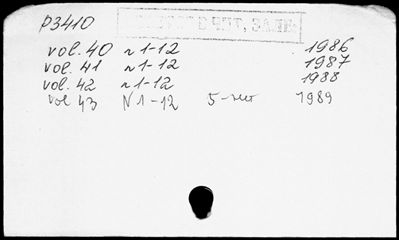 P3410
ЧИТ. ЗАЛЕ
vol. 40 n 1-12 1986
vol. 41 n 1-12 1987
vol. 42 n 1-12 1988
vol 43 N 1-12 1989